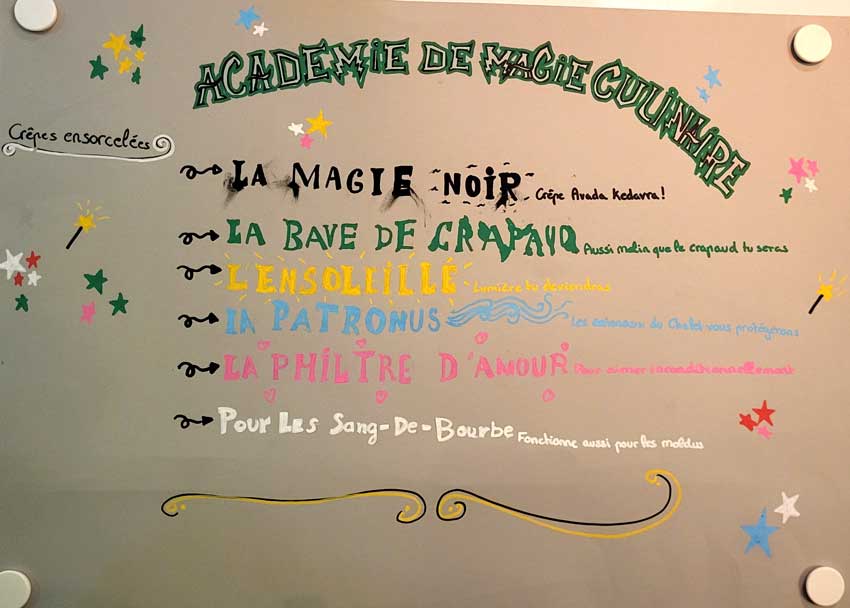 ACADEMIE DE MAGIE CULINAIRE
Crêpes ensorcelées
LA MAGIE NOIR Crêpe Avada Kedavra!
LA BAVE DE CRAPAUD Aussi malin que le crapaud tu seras
L'ENSOLEILLÉ Lumière tu deviendras
LA PATRONUS Les estomacs du Chalet vous protégerons
LA PHILTRE D'AMOUR Pour aimer inconditionnellement
Pour Les Sang-De-Bourbe Fonctionne aussi pour les moldus